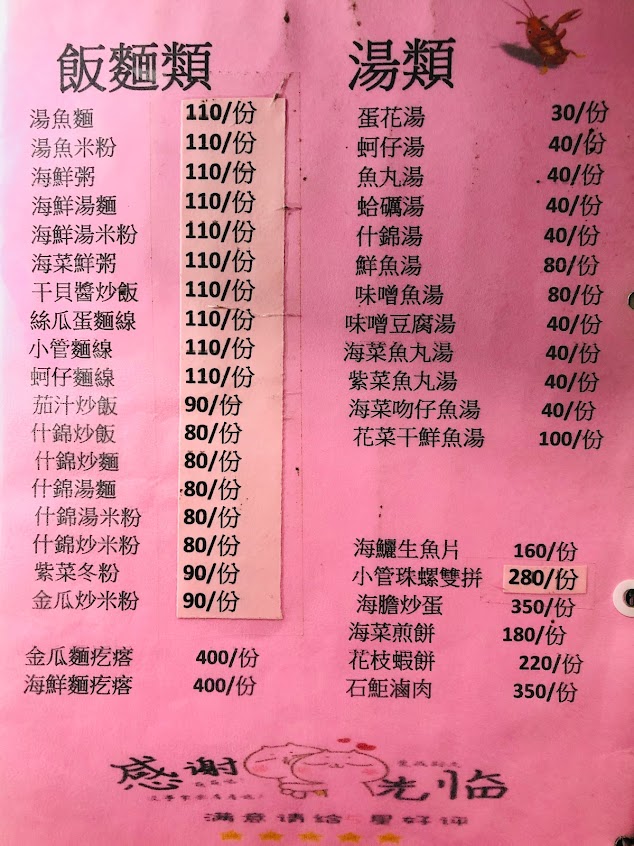 飯麵類
湯魚麵 110/份
湯魚米粉 110/份
海鮮粥 110/份
海鮮湯麵 110/份
海鮮湯米粉 110/份
海菜鮮粥 110/份
干貝醬炒飯 110/份
絲瓜蛋麵線 110/份
小管麵線 110/份
蚵仔麵線 110/份
茄汁炒飯 90/份
什錦炒飯 80/份
什錦炒麵 80/份
什錦湯麵 80/份
什錦湯米粉 80/份
什錦炒米粉 80/份
紫菜冬粉 90/份
金瓜炒米粉 90/份
金瓜麵疙瘩 400/份
海鮮麵疙瘩 400/份
湯類
蛋花湯 30/份
蚵仔湯 40/份
魚丸湯 40/份
蛤礪湯 40/份
什錦湯 40/份
鮮魚湯 80/份
味噌魚湯 80/份
味噌豆腐湯 40/份
海菜魚丸湯 40/份
紫菜魚丸湯 40/份
海菜吻仔魚湯 40/份
花菜干鮮魚湯 100/份
海鱺生魚片 160/份
小管珠螺雙拼 280/份
海膽炒蛋 350/份
海菜煎餅 180/份
花枝蝦餅 220/份
石鉅滷肉 350/份
感谢 光临
满意请给5星好评